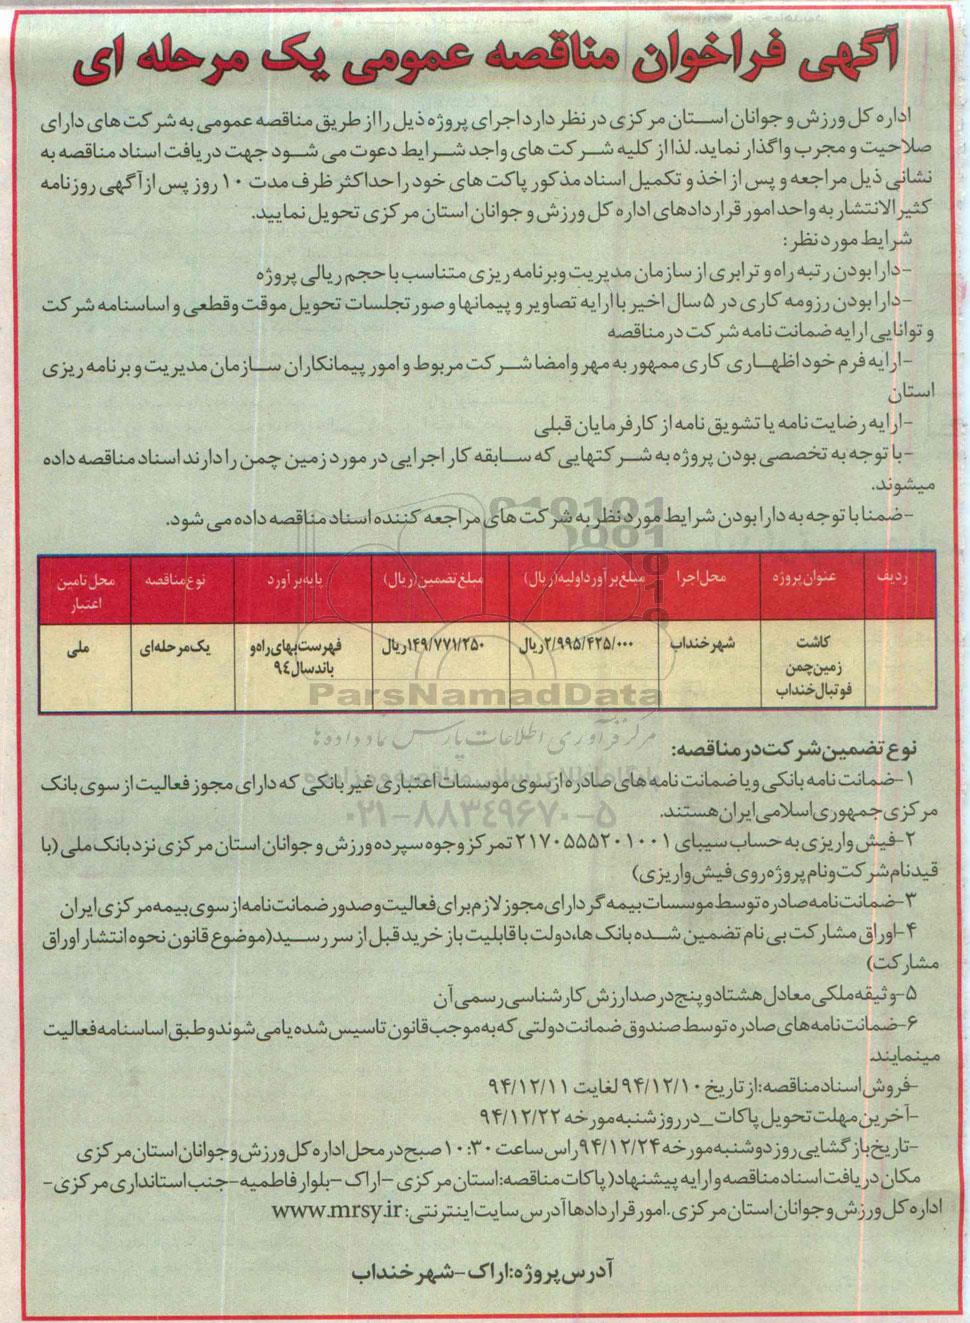 آگهی فراخوان مناقصه عمومی یک مرحله ای
اداره کل ورزش و جوانان استان مرکزی در نظر دارد اجرای پروژه ذیل را از طریق مناقصه عمومی به شرکت های دارای
صلاحیت و مجرب واگذار نماید. لذا از کلیه شرکت های واجد شرایط دعوت می شود جهت دریافت اسناد مناقصه به
نشانی ذیل مراجعه و پس از اخذ و تکمیل اسناد مذکور پاکت های خود را حداکثر ظرف مدت ۱۰ روز پس از آگهی روزنامه
کثیرالانتشار به واحد امور قراردادهای اداره کل ورزش و جوانان استان مرکزی تحویل نمایید.
شرایط مورد نظر:
-دارا بودن رتبه راه و ترابری از سازمان مدیریت وبرنامه ریزی متناسب با حجم ریالی پروژه
-دارا بودن رزومه کاری در ۵ سال اخیر با ارایه تصاویر و پیمانها و صورتجلسات تحویل موقت وقطعی و اساسنامه شرکت
و توانایی ارایه ضمانت نامه شرکت در مناقصه
-ارایه فرم خود اظهاری کاری ممهور به مهر وامضا شرکت مربوط و امور پیمانکاران سازمان مدیریت و برنامه ریزی
استان
-ارایه رضایت نامه یا تشویق نامه از کارفرمایان قبلی
-با توجه به تخصصی بودن پروژه به شرکتهایی که سابقه کار اجرایی در مورد زمین چمن را دارند اسناد مناقصه داده
میشوند.
-ضمنا با توجه به دارا بودن شرایط مورد نظر به شرکت های مراجعه کننده اسناد مناقصه داده می شود.
ردیف عنوان پروژه محل اجرا مبلغ برآورد اولیه(ریال) مبلغ تضمین(ریال) پایه برآورد نوع مناقصه محل تامین
اعتبار
کاشت شهرخنداب ۲/۹۹۵/۴۲۵/۰۰۰ریال ۱۴۹/۷۷۱/۲۵۰ریال فهرست بهای راه و یک مرحله ای ملی
زمین چمن باند سال ۹۴
فوتبال خنداب
ParsNamadData
مرکز فرآوری اطلاعات پارس نماد داده ها
نوع تضمین شرکت در مناقصه:
۱-ضمانت نامه بانکی و یا ضمانت نامه های صادره از سوی موسسات اعتباری غیر بانکی که دارای مجوز فعالیت از سوی بانک
مرکزی جمهوری اسلامی ایران هستند.
۰۲۱-۸۸۳۴۹۶۷۰-۵
۲-فیش واریزی به حساب سیبای ۲۱۷۰۵۵۵۲۰۱۰۰۱ تمرکز وجوه سپرده ورزش و جوانان استان مرکزی نزد بانک ملی (با
قید نام شرکت و نام پروژه روی فیش واریزی)
۳-ضمانت نامه صادره توسط موسسات بیمه گر دارای مجوز لازم برای فعالیت و صدور ضمانت نامه از سوی بیمه مرکزی ایران
۴-اوراق مشارکت بی نام تضمین شده بانک ها، دولت با قابلیت باز خرید قبل از سر رسید(موضوع قانون نحوه انتشار اوراق
مشارکت)
۵-وثیقه ملکی معادل هشتاد و پنج درصد ارزش کارشناسی رسمی آن
۶-ضمانت نامه های صادره توسط صندوق ضمانت دولتی که به موجب قانون تاسیس شده یا می شوند و طبق اساسنامه فعالیت
مینمایند.
-فروش اسناد مناقصه: از تاریخ ۹۴/۱۲/۱۰ لغایت ۹۴/۱۲/۱۱
-آخرین مهلت تحویل پاکات_در روز شنبه مورخه ۹۴/۱۲/۲۲
-تاریخ بازگشایی روز دوشنبه مورخه ۹۴/۱۲/۲۴ راس ساعت ۱۰:۳۰ صبح در محل اداره کل ورزش و جوانان استان مرکزی
مکان دریافت اسناد مناقصه و ارایه پیشنهاد( پاکات مناقصه: استان مرکزی -اراک -بلوار فاطمیه-جنب استانداری مرکزی-
اداره کل ورزش و جوانان استان مرکزی. امور قراردادها آدرس سایت اینترنتی: www.mrsy.ir
آدرس پروژه: اراک-شهر خنداب